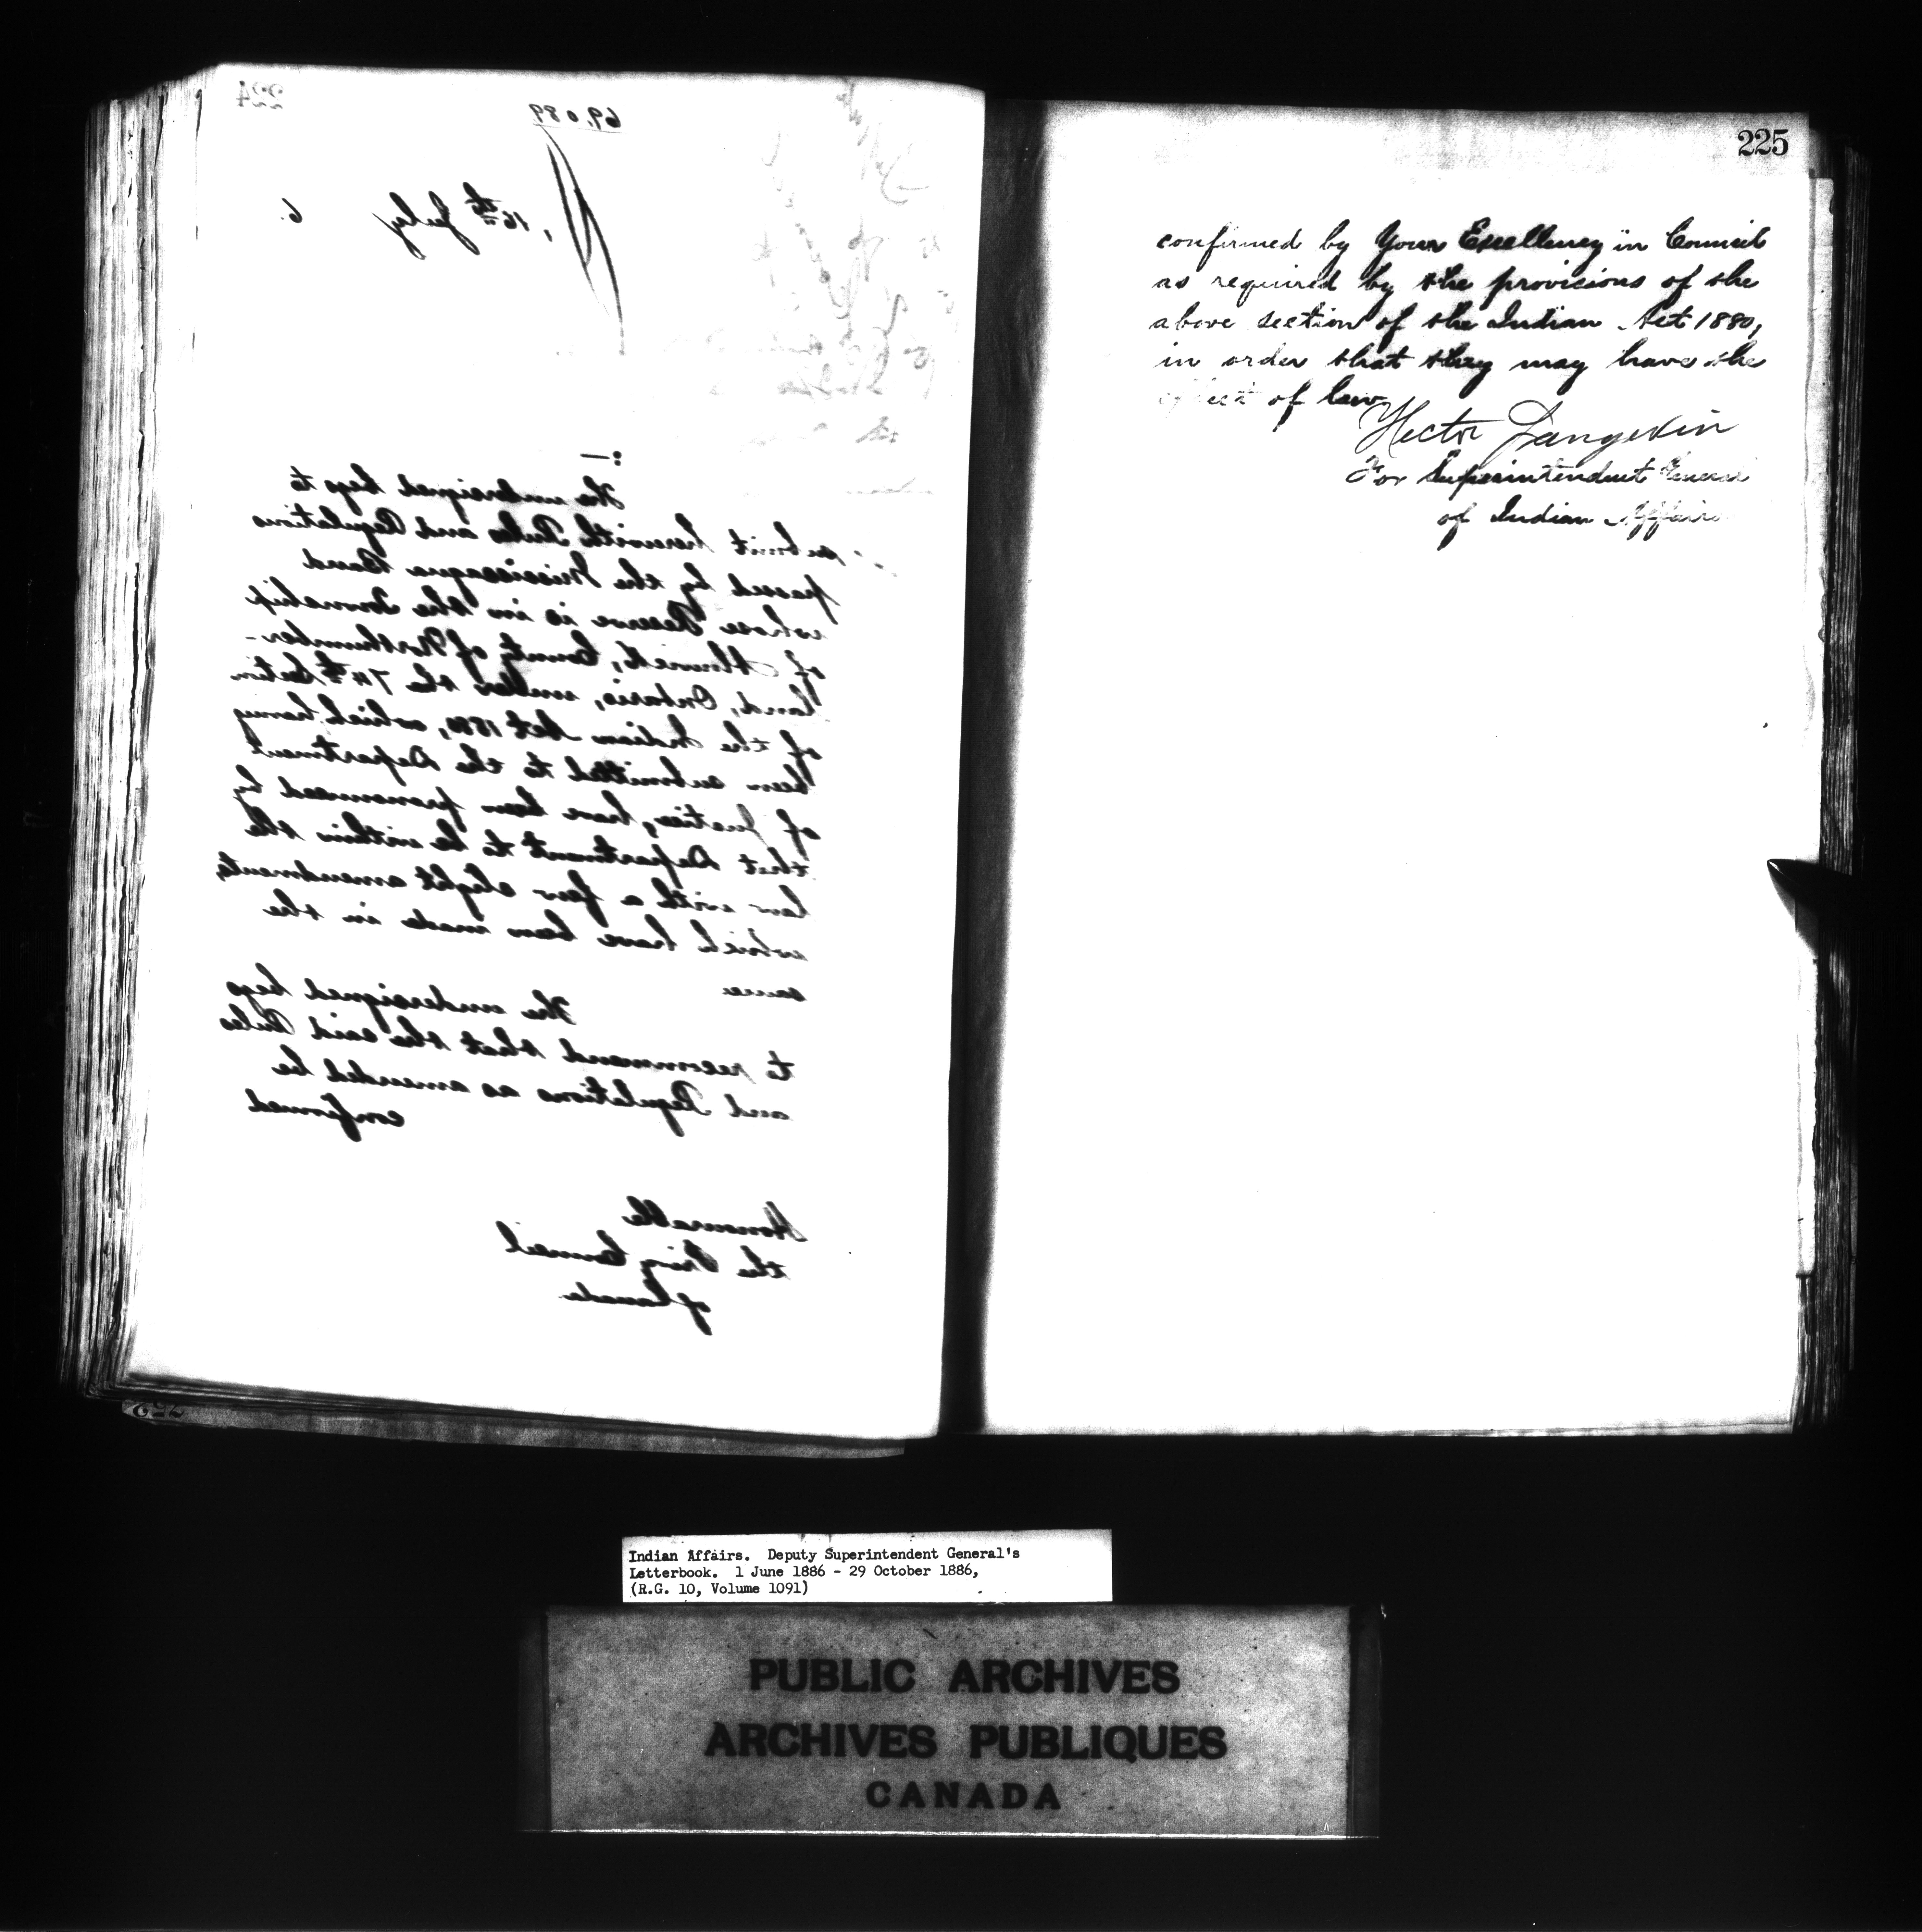 224
69.089
, 16th July 6.
:—
The undersigned begs to
submit herewith Rules and Regulations
passed by the Mississagua Band
whose Reserve is in the Township
of Alnwick, County of Northumber-
land, Ontario, under the 74th Section
of the Indian Act 1880, which having
been submitted to the Department
of Justice, have been pronounced by
that Department to be within the
law with a few slight amendments,
which have been made in the
same
The undersigned begs
to recommend that the said Rules
and Regulations as amended be
confirmed
Honourable
the Privy Council
of Canada
225
confirmed by Your Excellency in Council
as required by the provisions of the
above section of the Indian Act 1880,
in order that they may have the
effect of law
Hector Langevin
For Superintendent General
of Indian Affairs
Indian Affairs. Deputy Superintendent General's
Letterbook. 1 June 1886 - 29 October 1886,
(R.G. 10, Volume 1091)
PUBLIC ARCHIVES
ARCHIVES PUBLIQUES
CANADA